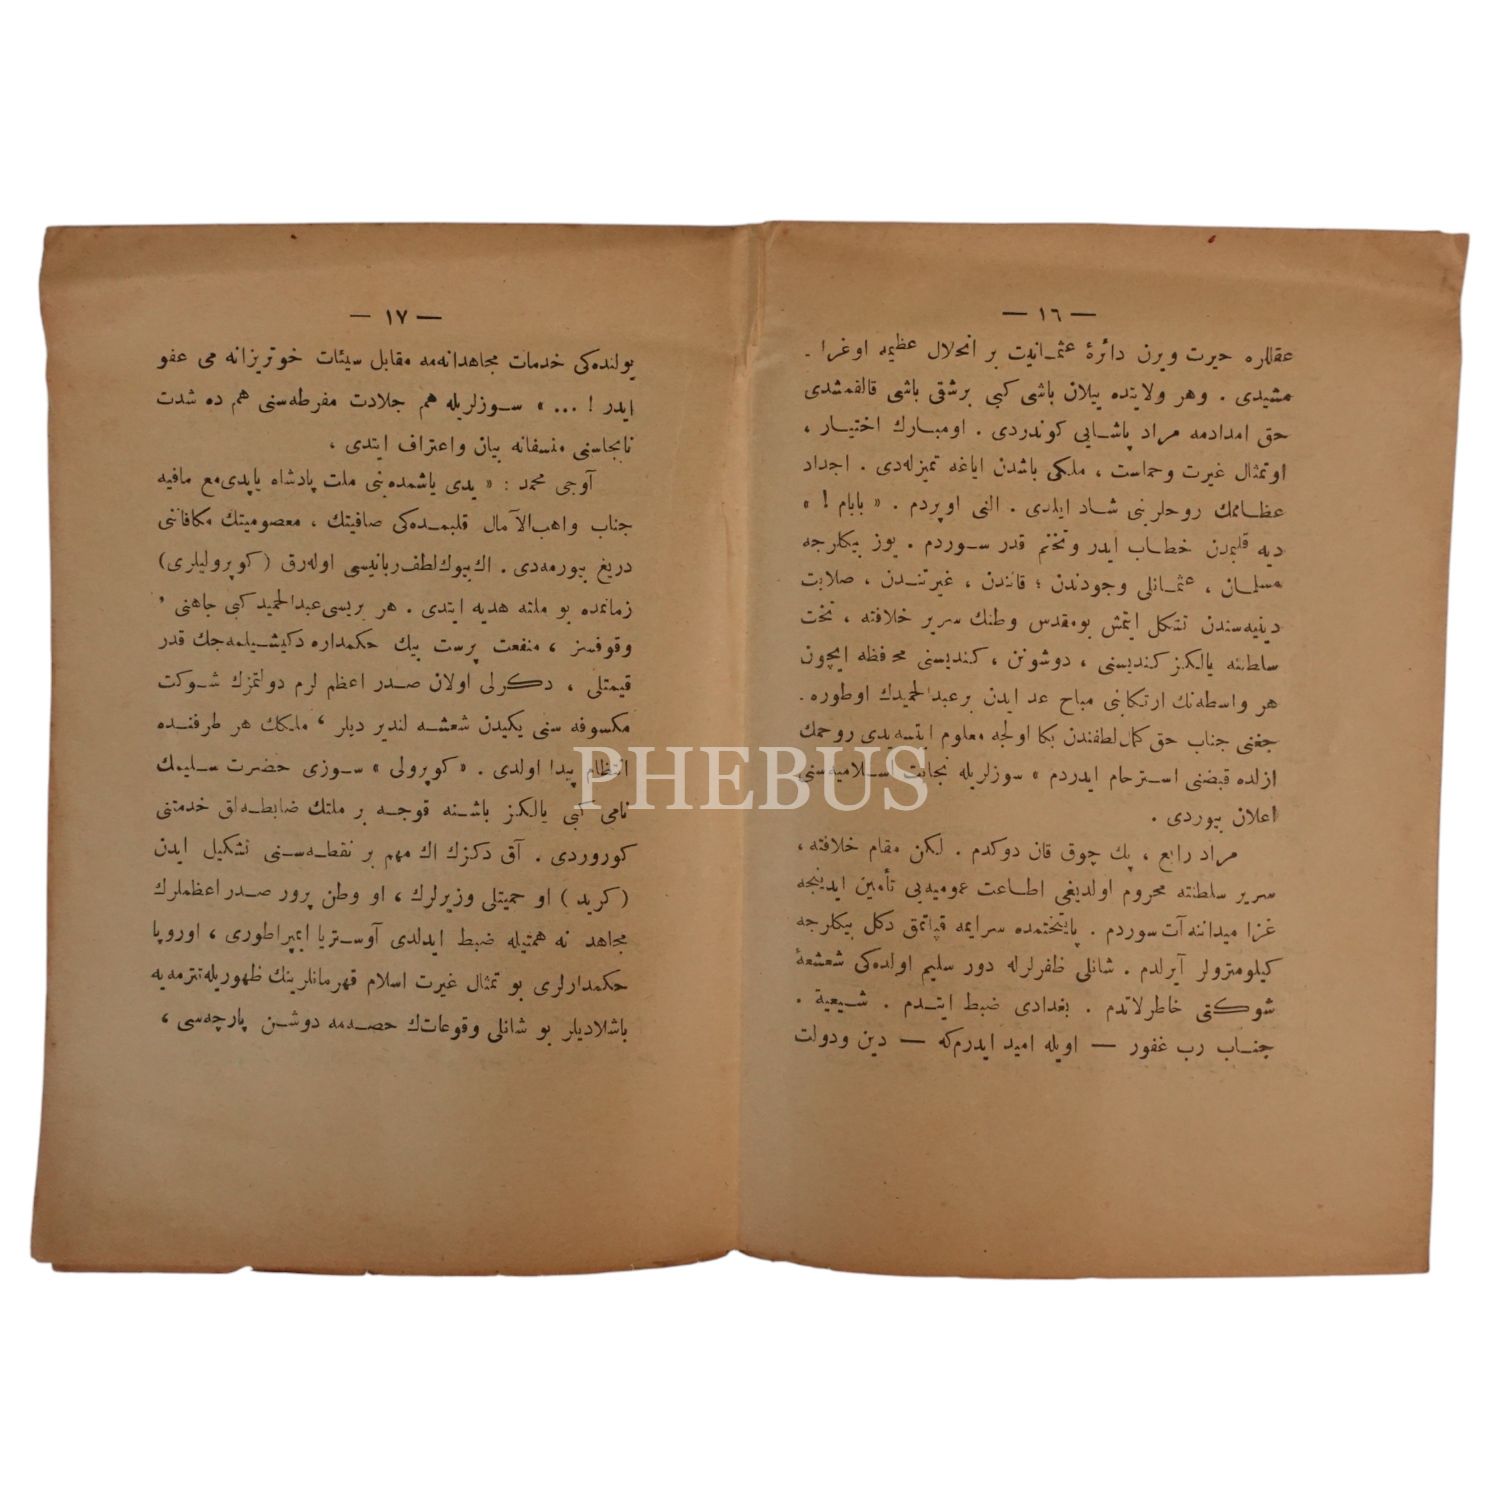 — ١٦ —
عقللره حيرت ويرن دائرهٔ عثمانيت بر انحلال عظيمه اوغرا .
مشيدى . وهر ولايتده ييلان باشى كبى برشقى باشى قالقمشدى
حق امدادمه مراد پاشايى كوندردى . اومبارك اختيار ،
اوتمثال غيرت وحماست ، ملكى باشدن اياغه تميزله‌دى . اجداد
عظاممك روحلرينى شاد ايلدى . النى اوپردم . « بابام ! »
ديه قلبمدن خطاب ايدر وتختم قدر سوردم . يوز بيكلرجه
مسلمان ، عثمانلى وجودندن ؛ قانندن ، غيرتندن ، صلابت
دينيه‌سندن تشكل ايتمش بومقدس وطنك سرير خلافته ، تخت
سلطنته يالكز كنديسنى ، دوشونن ، كنديسنى محافظه ايچون
هر واسطه‌نك ارتكابنى مباح عد ايدن برعبدالحميدك اوطوره .
جغنى جناب حق كمال لطفندن بكا اولجه معلوم ايتسه‌يدى روحمك
ازلده قبضنى استرحام ايدردم » سوزلريله نجابت سلاميه‌سنى
اعلان بيوردى .
مراد رابع ، پك چوق قان دوكدم . ليكن مقام خلافته ،
سرير سلطنته محروم اولديغى اطاعت عموميه‌يى تأمين ايدينجه
غزا ميداننه آت سوردم . پايتختمده سرايمه قپاتمق دكل بيكلرجه
كيلومترولر آيرلدم . شانلى ظفرلرله دور سليم اولده‌كى شعشعهٔ
شوكتى خاطرلاتدم . بغدادى ضبط ايتدم . شيعية .
جناب رب غفور — اويله اميد ايدرم‌كه — دين ودولت
— ١٧ —
يولنده‌كى خدمات مجاهدانه‌مه مقابل سيئات خونريزانه مى عفو
ايدر ! ... » سوزلريله هم جلادت مفرطه‌سنى هم ده شدت
نابجاسنى منسفانه بيان واعتراف ايتدى ،
آوجى محمد : « يدى ياشمده‌بنى ملت پادشاه ياپدى‌مع مافيه
جناب واهب‌الآمال قلبمده‌كى صافيتك ، معصوميتك مكافاتنى
دريغ بيورمه‌دى . اك‌بيوك‌لطف‌ربانيسى اوله‌رق (كوپروليلرى)
زمانمده بو ملته هديه ايتدى . هر بريسى‌عبدالحميد كبى جاهنى ،
وقوفسز ، منفعت پرست بيك حكمداره دكيشيلمه‌جك قدر
قيمتلى ، دكرلى اولان صدر اعظم لرم دولتمزك شوكت
مكسوفه سنى يكيدن شعشه لندير ديلر ، ملكك هر طرفنده
انتظام پيدا اولدى . « كوپرولى » سوزى حضرت سليمك
نامى كبى يالكز باشنه قوجه بر ملتك ضابطه‌لق خدمتنى
كوروردى . آق دكزك اك مهم بر نقطه‌سنى تشكيل ايدن
(كريد) او حميتلى وزيرلرك ، او وطن پرور صدر اعظملرك
مجاهد نه همتيله ضبط ايدلدى آوستريا ايمپراطورى ، اوروپا
حكمدارلرى بو تمثال غيرت اسلام قهرمانلرينك ظهوريله‌تترمه‌يه
باشلاديلر بو شانلى وقوعاتك حصه‌مه دوشن پارچه‌سى ،
PHEBUS